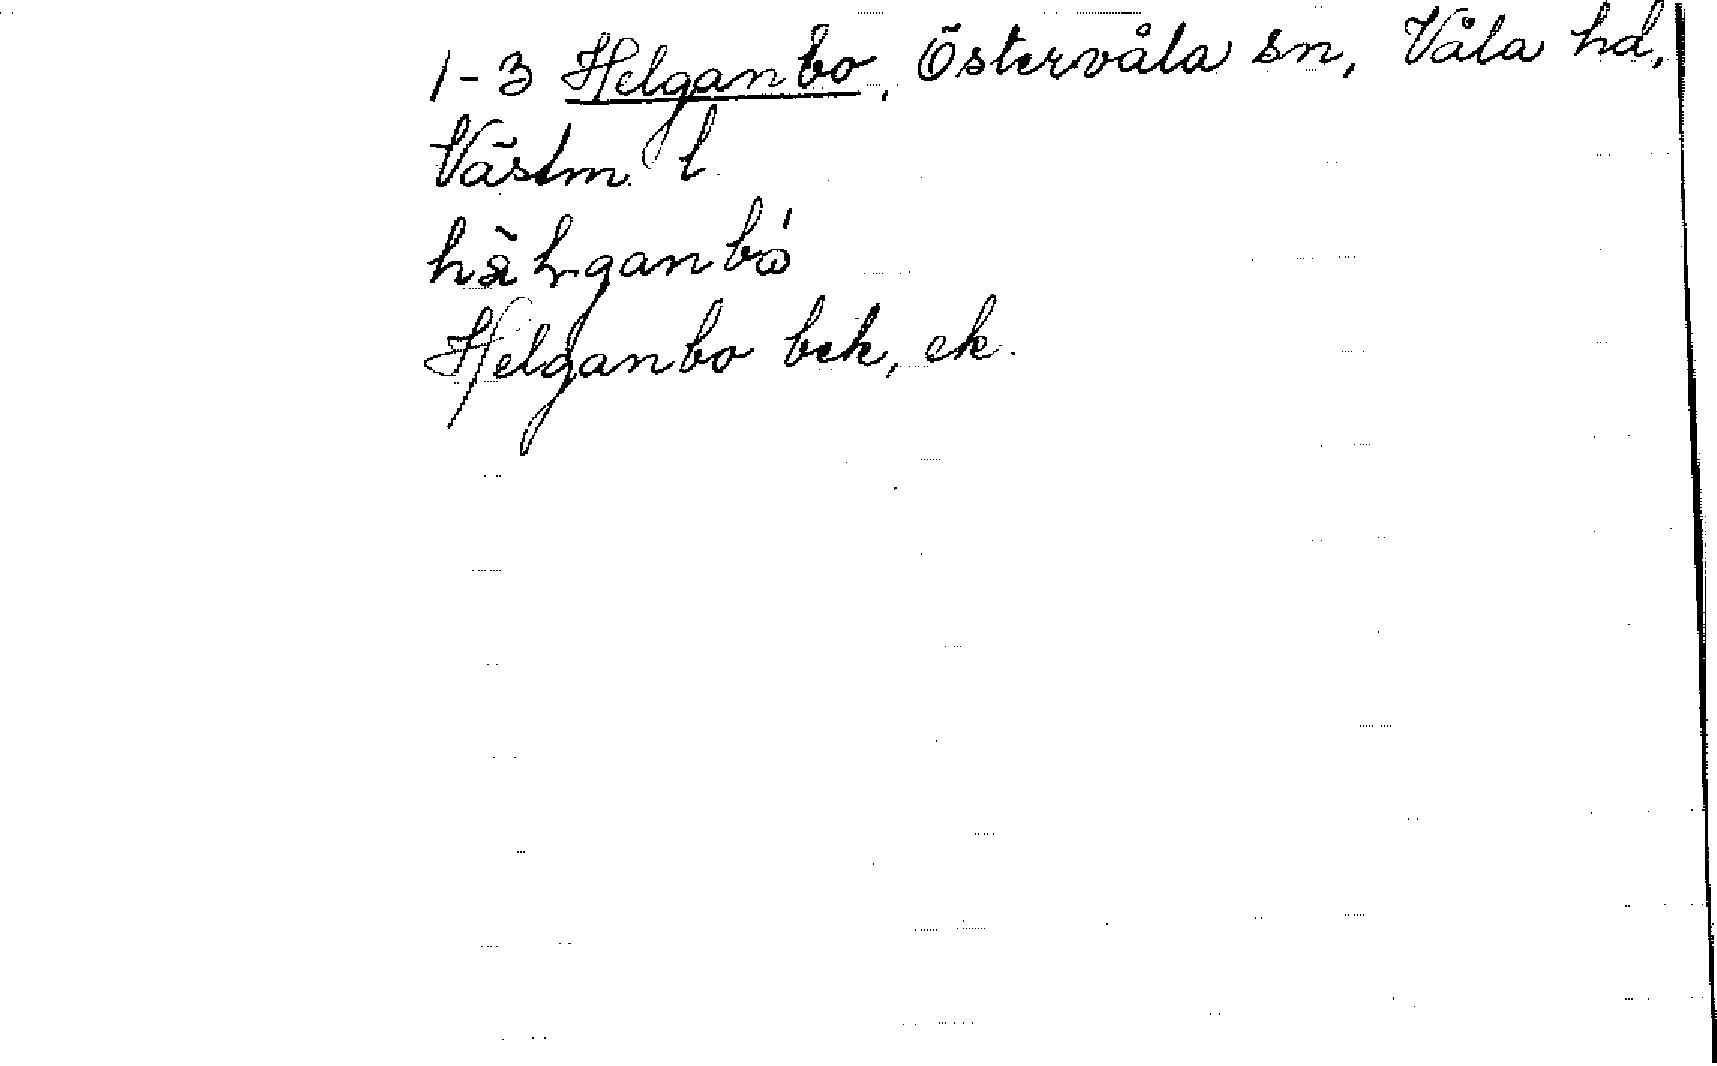 1-3 Helganbo, Östervåla sn, Våla hd,
Västm. l.
Helganbo bek, ek.